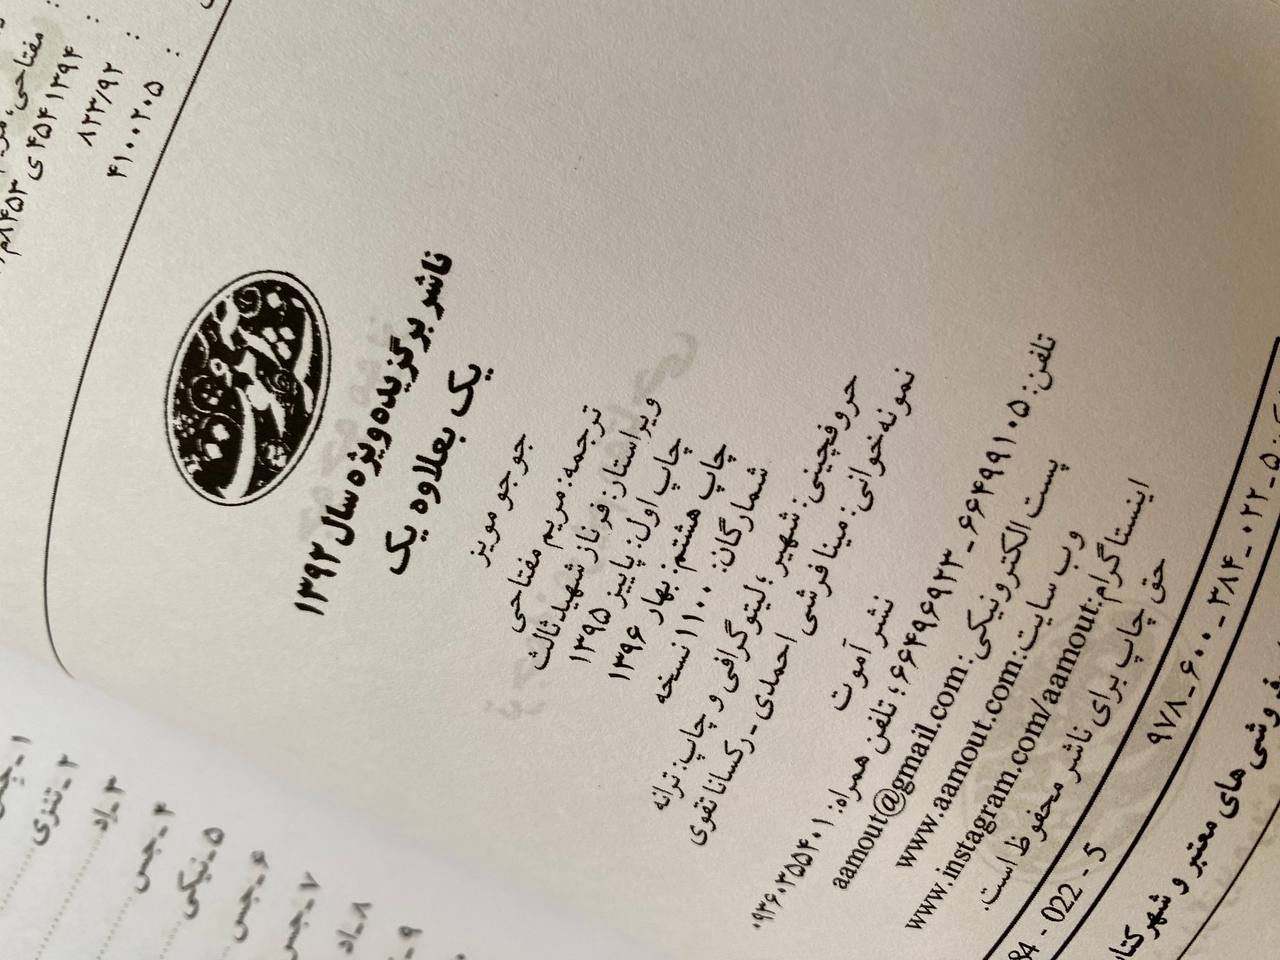 مفتاحی، مر
۴۵۴ ۱۳۹۴ ی ۸۴۵۳م
۸۲۳/۹۲
۴۱۰۰۲۰۵
ناشر برگزیده ویژه سال ۱۳۹۲
یک بعلاوه یک
جوجو مویز
ترجمه: مریم مفتاحی
ویراستار: فرناز شهیدثالث
چاپ اول: پاییز ۱۳۹۵
چاپ هشتم: بهار ۱۳۹۶
شمارگان: ۱۱۰۰ نسخه
حروفچینی: شهیر؛ لیتوگرافی و چاپ: ترانه
نمونه‌خوانی: مینا فرشی احمدی ـ رکسانا تقوی
نشر آموت
تلفن: ۶۶۴۹۹۱۰۵ـ ۶۶۴۹۶۹۲۳؛ تلفن همراه: ۰۹۳۶۰۳۵۵۴۰۱
پست الکترونیکی: aamout@gmail.com
وب سایت: www.aamout.com
اینستاگرام: www.instagram.com/aamout
حق چاپ برای ناشر محفوظ است.
۹۷۸ـ۶۰۰ـ۳۸۴ـ۰۲۲ـ۵
84 - 022 - 5
فروشی های معتبر و شهر کتا
۱ـ جس
۲ـ تنزی
۳ـ اد
۴ـ جس
۵ـ نیکی
۶ـ جس
۷ـ جس
۸ـ اد
۹ـ